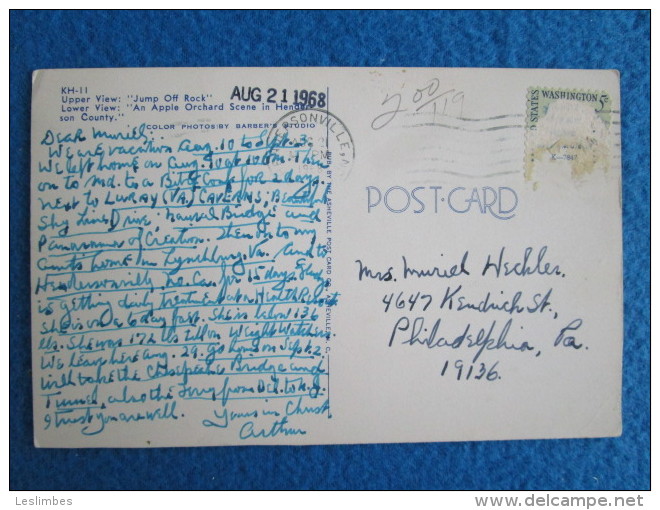 KH-11
Upper View: "Jump Off Rock"
Lower View: "An Apple Orchard Scene in Hender-
son County."
COLOR PHOTOS BY BARBER'S STUDIO
AUG 21 1968
200
/119
STATES WASHINGTON
POST-CARD
Dear Muriel:
We are vacation Aug. 10 to Sept. 3.
We left home on Aug. 10 at 10 P.M. Then
on to Md. to a Bible Conf. for 2 days.
next to Luray (Va.) Caverns,
Sky Line Drive, Natural Bridge and
of Creation. Then on to my
Aunts home in Lynchburg, Va. and to
Hendersonville, N.C. for 15 days. Gladys
is getting daily treatment at a Health Retreat
She is on a 6 day fast. She is below 136
lbs. She was 172 lbs till on Weight Watchers
We leave here Aug. 29. go home on Sept. 2.
will take the Chesapeake Bridge and
Tunnel, also the ferry from Del. to N.J.
I trust you are well. Yours in Christ,
Arthur
Mrs. Muriel Heckler
4647 Kendrick St.,
Philadelphia, Pa.
19136.
Leslimbes
delcampe.net